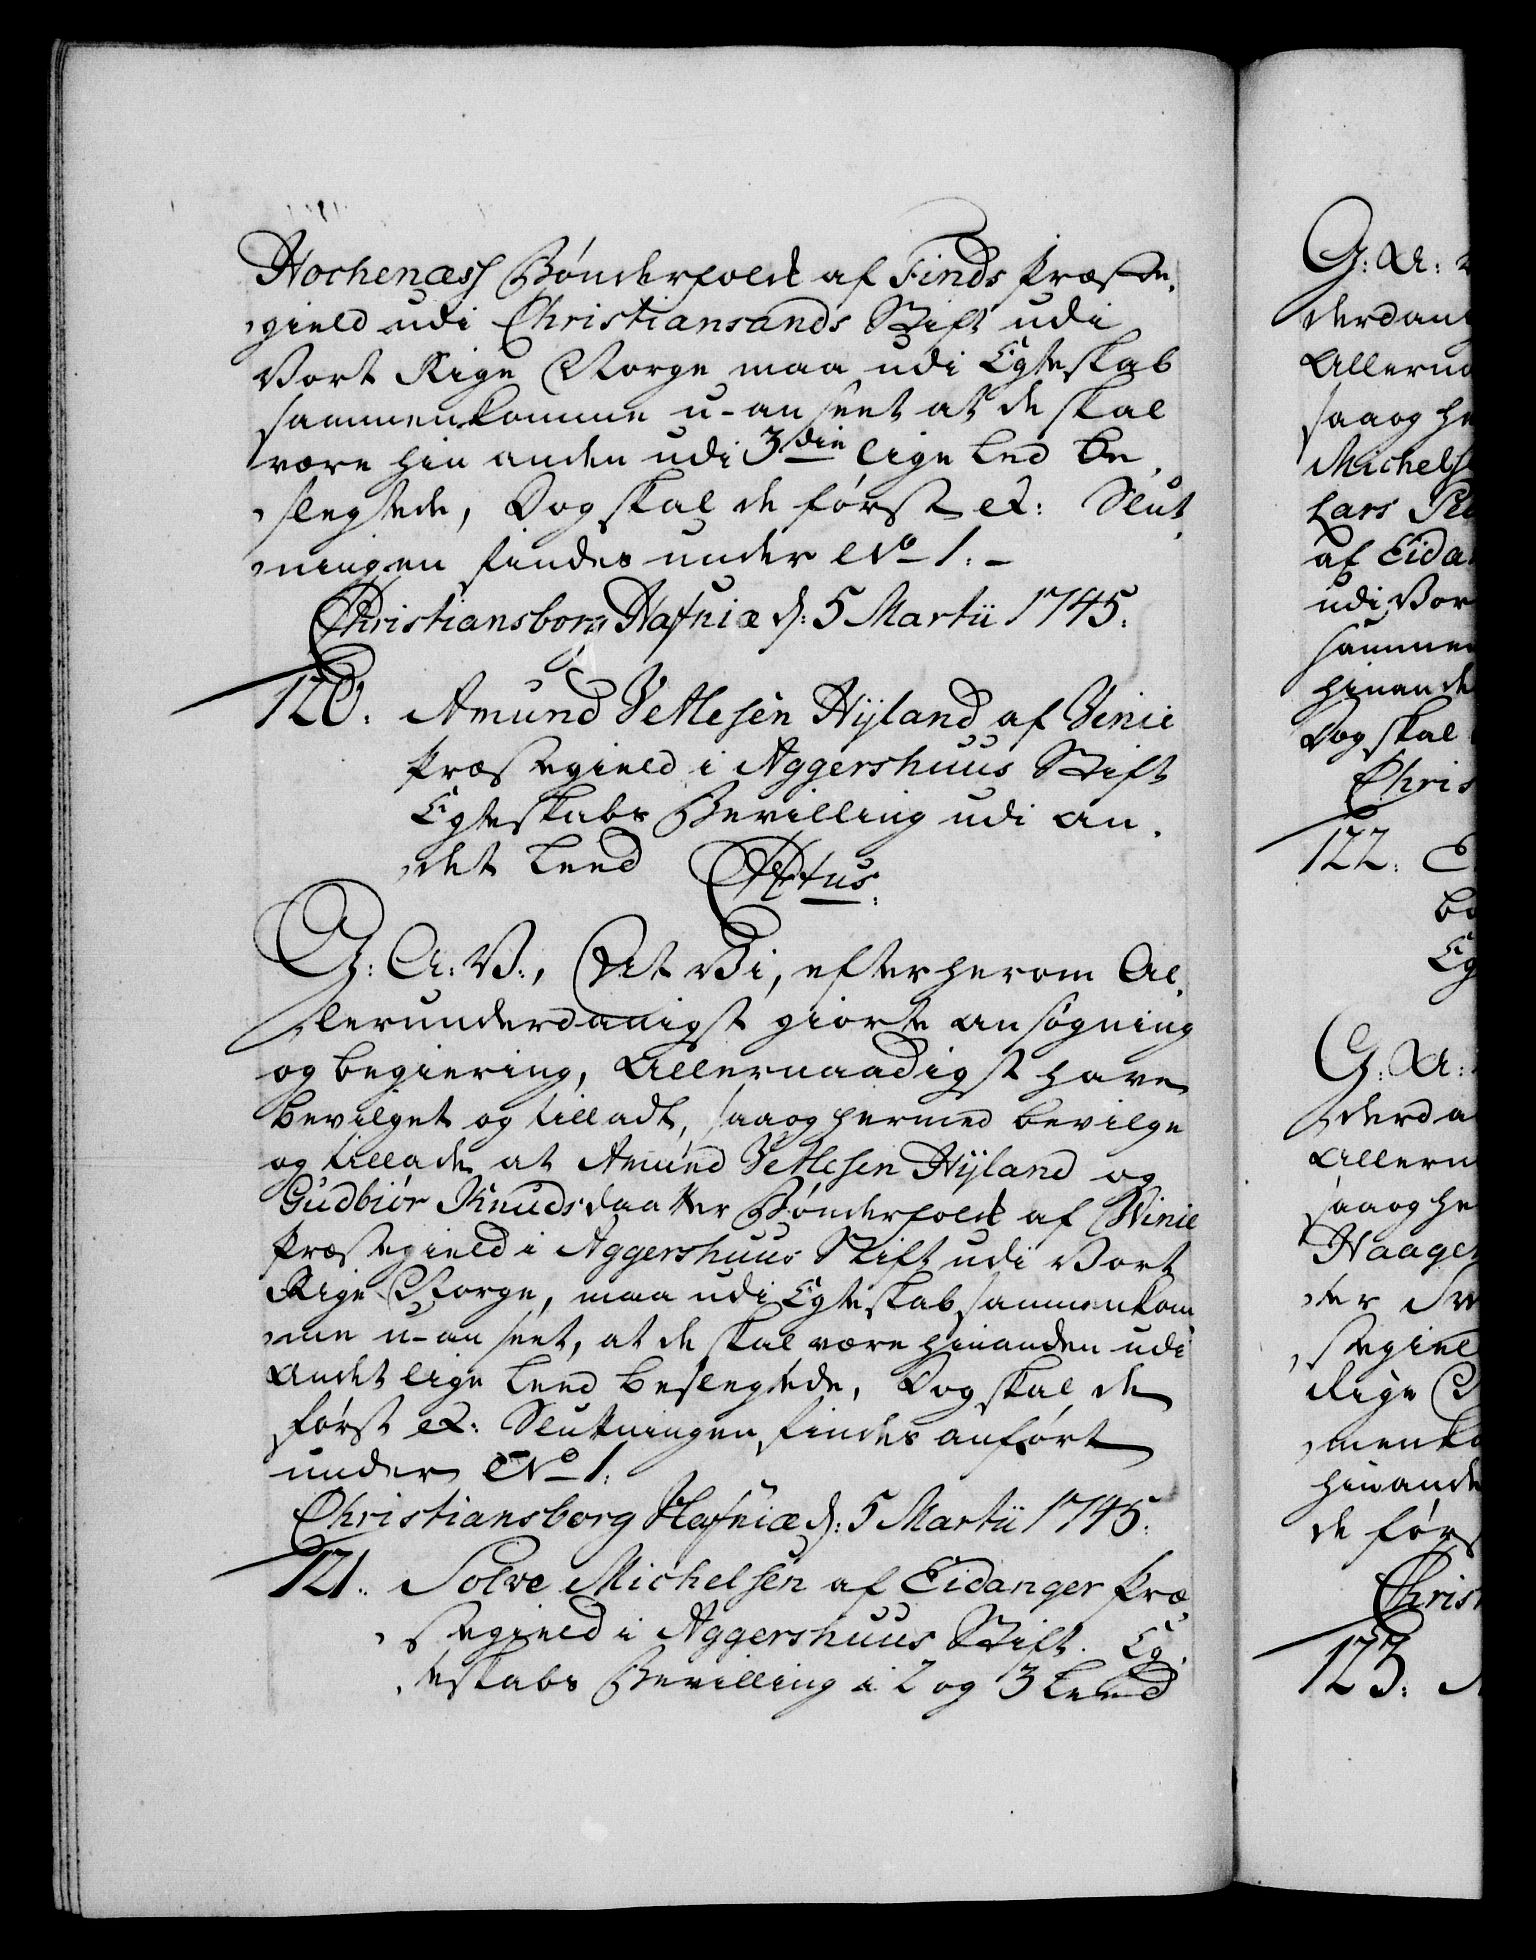 Hochenæss Bønderfolk af Finds Præste,
gield udi Christiansands Stift udi
Vort Rige Norge maa udi Egteskab
sammenkomme u-anseet at de skal
være hin anden udi 3die lige Led be,
slegtede, Dog skal de først etc: Slut,
ningen findes under No 1:
Christiansborg Hafniæ d: 5 Martii 1745.
120. Amund Vetlesen Hÿland af Vinie
Præstegield i Aggershuus Stift
Egteskabs Bevilling udi an,
det Leed
G: A: V:, At Vi, efter herom Al,
lerunderdanigst giorte ansøgning
og begiering, Allernaadigst have
bevilget og tilladt, saa og hermed bevilge
og tillade at Amund Vetlesen Hÿland og
Gudbiør Knudsdaatter Bønderfolk af Winie
Præstegield i Aggershuus Stift udi Vort
Rige Norge, maa udi Egteskab sammenkom,
me u-anseet, at de skal være hinanden udi
Andet lige Leed beslegtede, Dog skal de
først etc: Slutningen findes anført
under No 1.
Christiansborg Hafniæ d: 5 Martii 1745.
121. Solve Michelsen af Eidanger Præ
stegield i Aggershuus Stift. Eg,
teskabs Bevilling i 2 og 3 Leed
G: A:
derdan
Allerna
saa og he
Michels
Lars
af Eida
udi Vor
sammen
hinande
Dog skal
Chris
122. E
Eg
G: A:
derda
Allern
saa og he
Haagen
ter
stegiel
Rige N
menko
hinande
de førs
Christ
123.